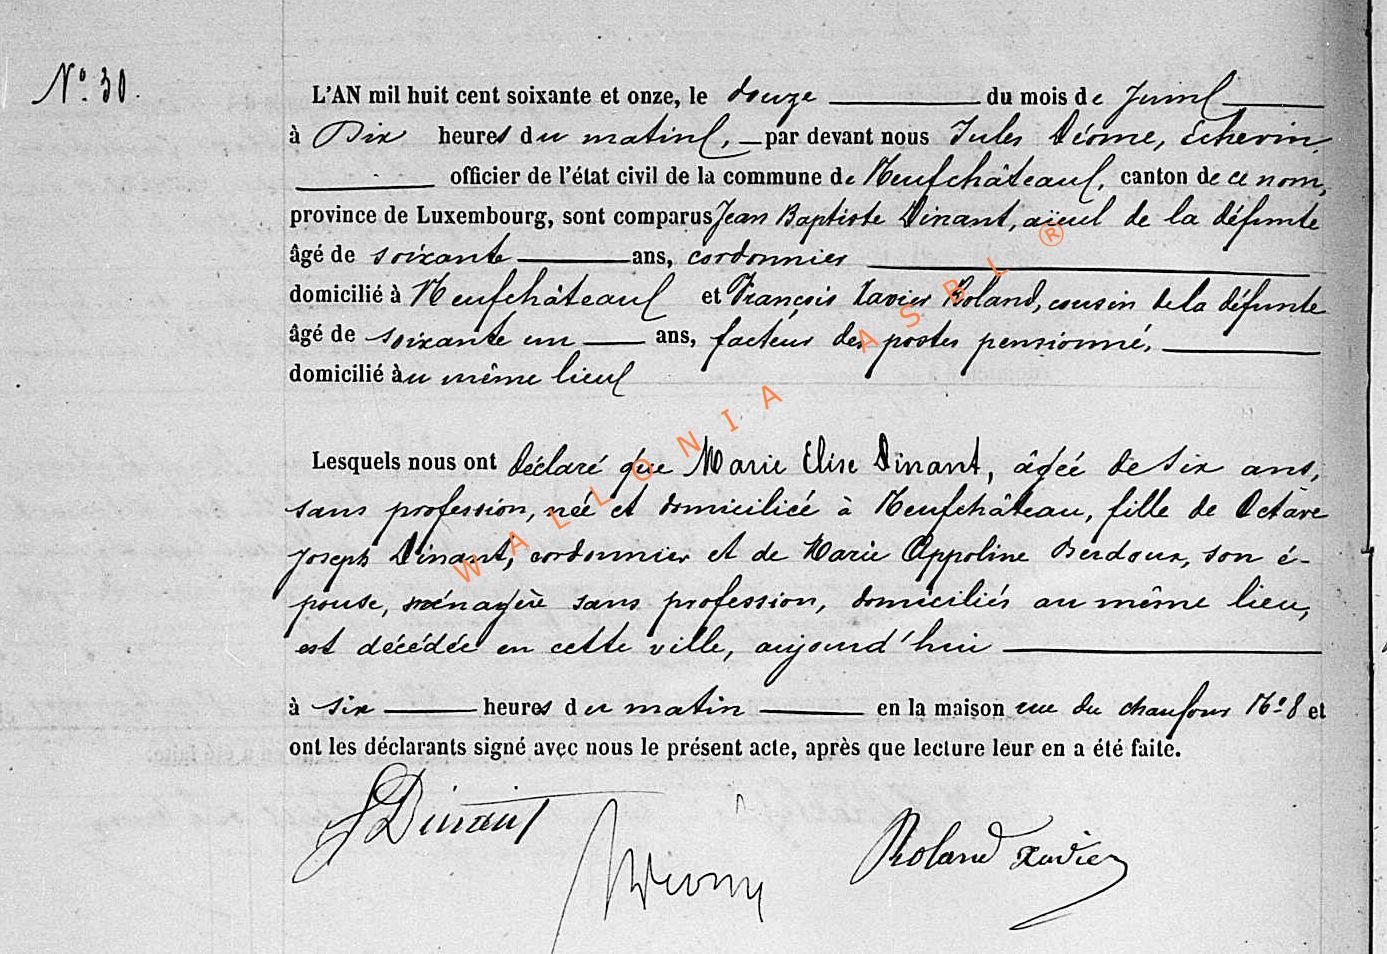 N° 30.
L'AN mil huit cent soixante et onze, le douze du mois de Juin
à Dix heures du matin, par devant nous Jules Déome, Echevin,
officier de l'état civil de la commune de Neufchâteau, canton de ce nom,
province de Luxembourg, sont comparus Jean Baptiste Dinant, aïeul de la défunte
âgé de soixante ans, cordonnier
domicilié à Neufchâteau et François Xavier Roland, cousin de la défunte
âgé de soixante un ans, facteur des postes pensionné,
domicilié au même lieu
Lesquels nous ont déclaré que Marie Elise Dinant, âgée de six ans,
sans profession, née et domiciliée à Neufchâteau, fille de Octave
Joseph Dinant, cordonnier et de Marie Appoline Berdoux, son é-
pouse, ménagère sans profession, domiciliés au même lieu,
est décédée en cette ville, aujourd'hui
à six heures du matin en la maison rue du chaufour N° 8 et
ont les déclarants signé avec nous le présent acte, après que lecture leur en a été faite.
J Dinant
JDéom
Roland Xavier
WALLONIA ASBL ®